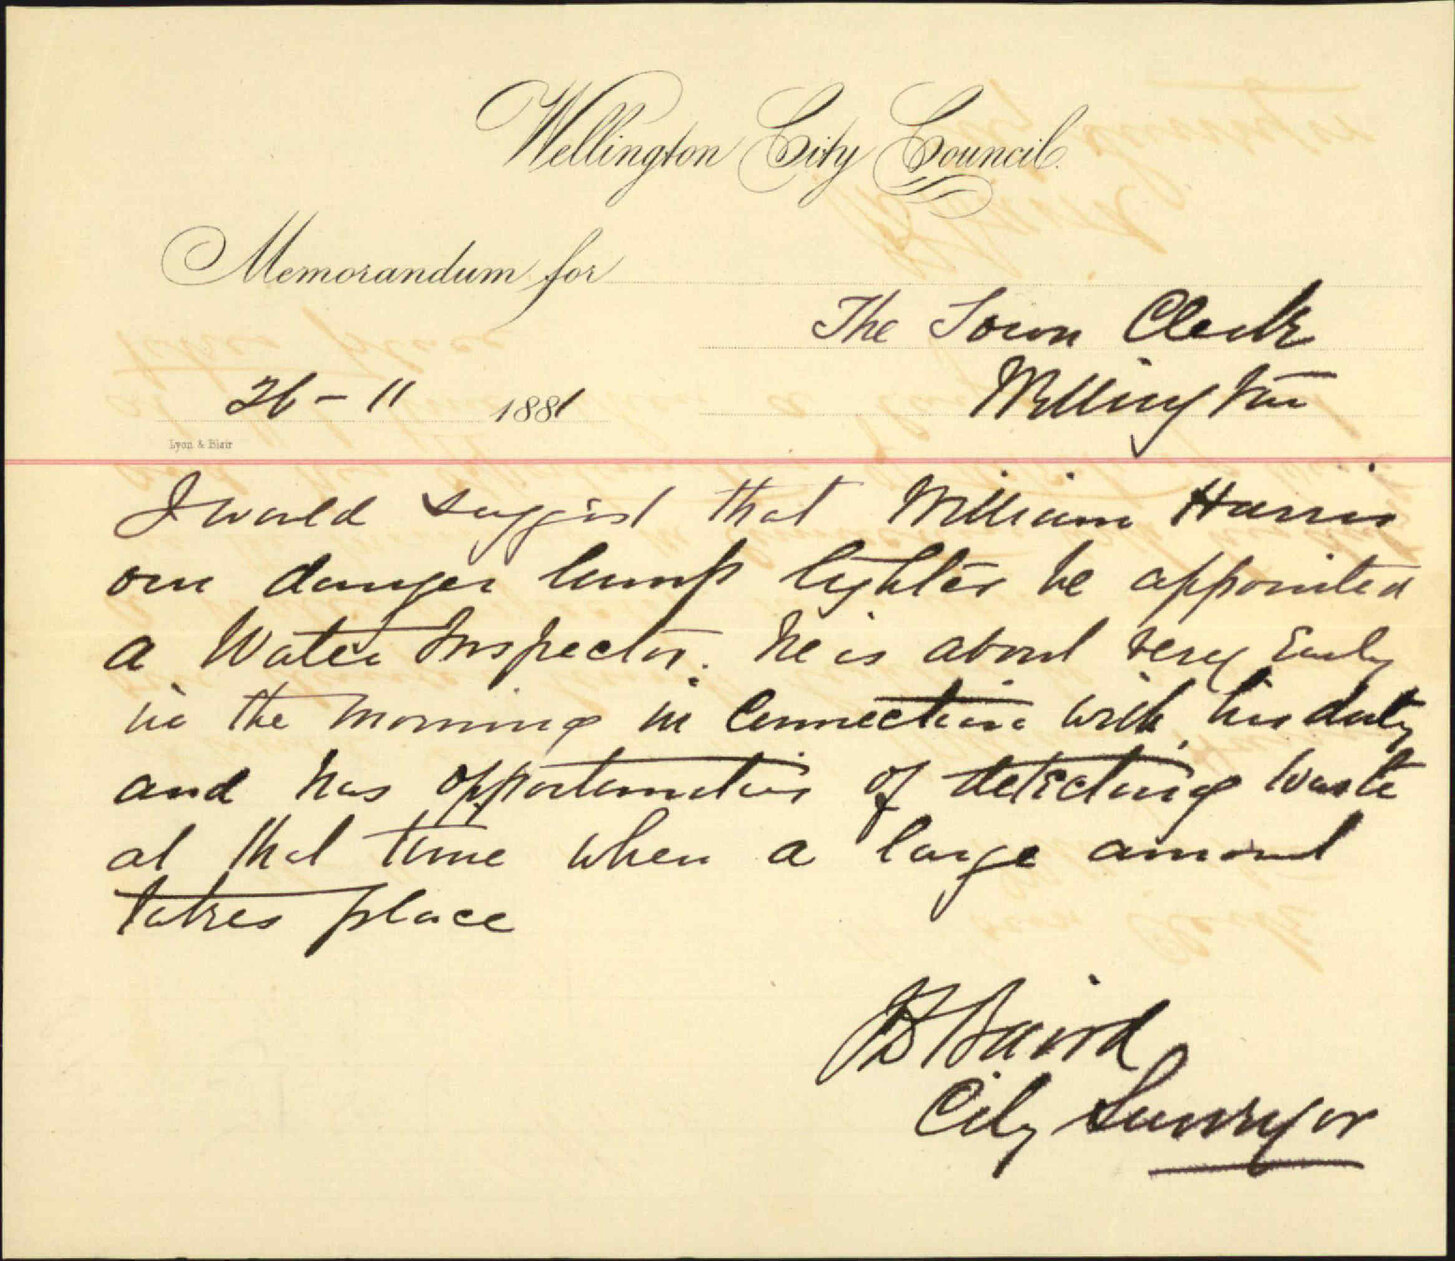 Wellington City Council.
Memorandum for
The Town Clerk
Wellington
26 - 11 1881
Lyon & Blair
I would suggest that William Harris
our danger lamp lighter be appointed
a Water Inspector. he is about very Early
in the morning in Connection with his duty
and has opportunities of detecting waste
at that time when a large amount
takes place
JD Baird
City Surveyor